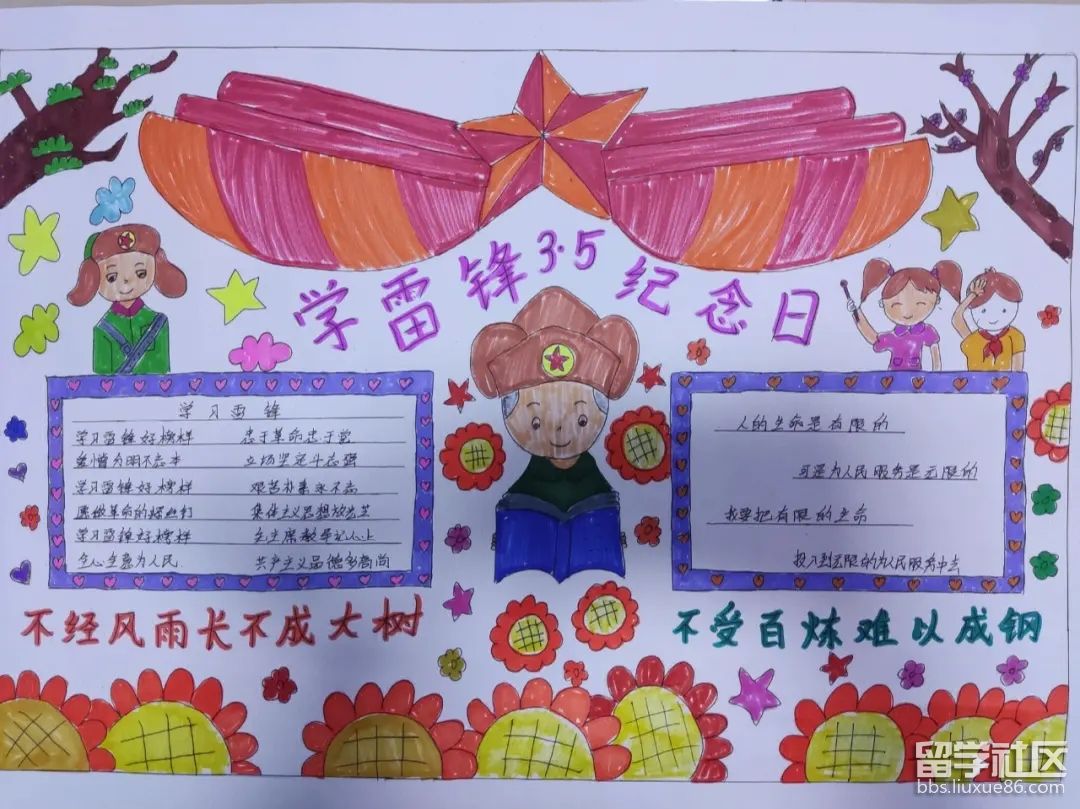 学雷锋3·5纪念日
学习雷锋
学习雷锋好榜样 忠于革命忠于党
爱憎分明不忘本 立场坚定斗志强
学习雷锋好榜样 艰苦朴素永不忘
愿做革命的螺丝钉 集体主义思想放光芒
学习雷锋好榜样 毛主席教导记心上
全心全意为人民 共产主义品德多高尚
人的生命是有限的
可是为人民服务是无限的
我要把有限的生命
投入到无限的为人民服务中去
不经风雨长不成大树
不受百炼难以成钢
留学社区
bbs.liuxue86.com